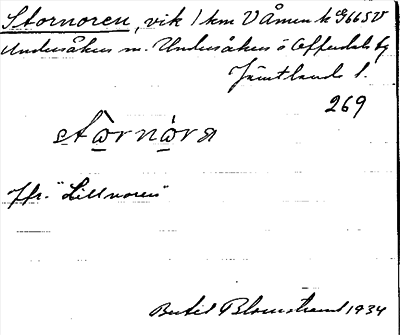 Stornoren, vik 1 km V Åmun k G665V
Undersåkers sn. Undersåkers o Offerdals tg
Jämtlands l.
269
stòrnòra
Jfr. "Lillnoren"
Bertil Blomstrand 1934